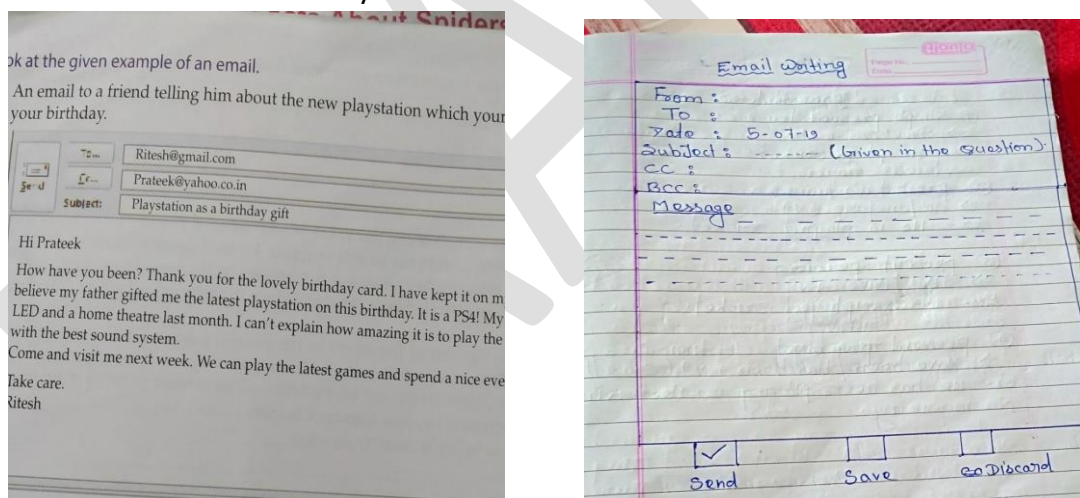 About Spiders
ok at the given example of an email.
An email to a friend telling him about the new playstation which your
your birthday.
To...
Ritesh@gmail.com
Send
Cc...
Prateek@yahoo.co.in
Subject:
Playstation as a birthday gift
Hi Prateek
How have you been? Thank you for the lovely birthday card. I have kept it on m
believe my father gifted me the latest playstation on this birthday. It is a PS4! My
LED and a home theatre last month. I can't explain how amazing it is to play the
with the best sound system.
Come and visit me next week. We can play the latest games and spend a nice eve
Take care.
Ritesh
ajanta
Page No.
Date
Email Writing
From :
To :
Date : 5-07-19
Subject : ------ (Given in the Question).
CC :
BCC :
Message
Send
Save
Discard